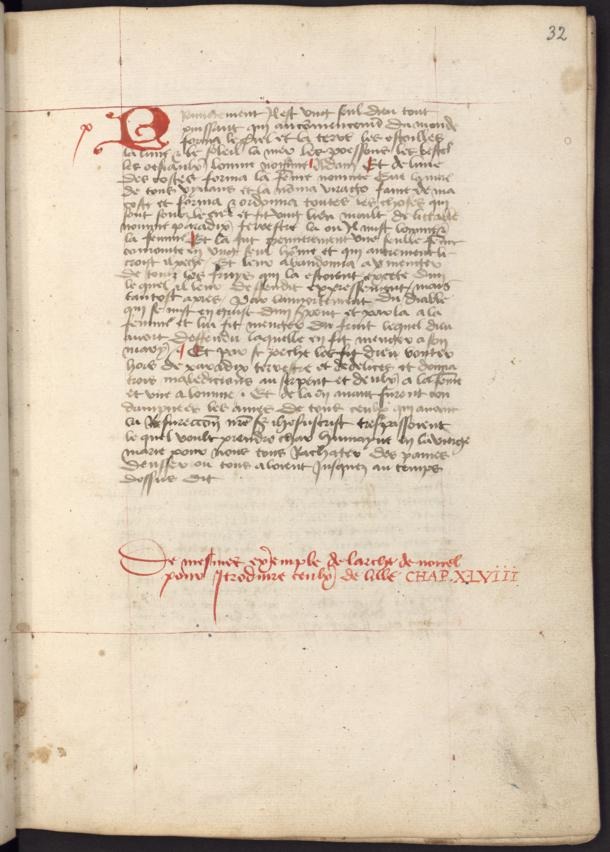 32
ment Il est ung seul dieu tout
puissant qui au commencement du monde
forma le ciel et la terre les estoilles
la lune & le soleil la mer les poissons les bestes
les oiseaulx lomme nomme Adam Et de lune
des costes forma la feme nommee Eve la mere
de tous vivans et la noma virago faite de ma
coste et forma & ordonna toutes les choses qui
sont soubz le ciel et fit ung lieu moult delictable
nomme paradix terrestre la ou il mist lomme &
la femme Et la fut une seulle feme
en ung seul home et qui
Et leur abandonna a menger
de tous les fruis qui la estoient excepte dun
lequel il leur deffendit expressement mais
tantost apres par lamortement du diable
qui se mist en guise dun serpent et parla a la
femme et lui fit menger du fruit lequel dieu
avoit deffendu laquelle en fit menger a son
mary Et par ce peche les fit dieu bouter
hors de paradix terrestre et de delices et donna
trois maledictions au serpent et deulx a la feme
et une a lomme . Et de la en avant furent con
dampnees les ames de tous ceulx qui avant
la Resurection nre sr ihesucrist trespassoient
lequel voult prendre char humayne en la vierge
marie pour nous tous Rachater des paines
denffer ou tous aloient Jusques au temps
dessus dit
De mesmes exemple de larche de nouel
pour Itroduire ceulx de lille CHAP. XLVIII